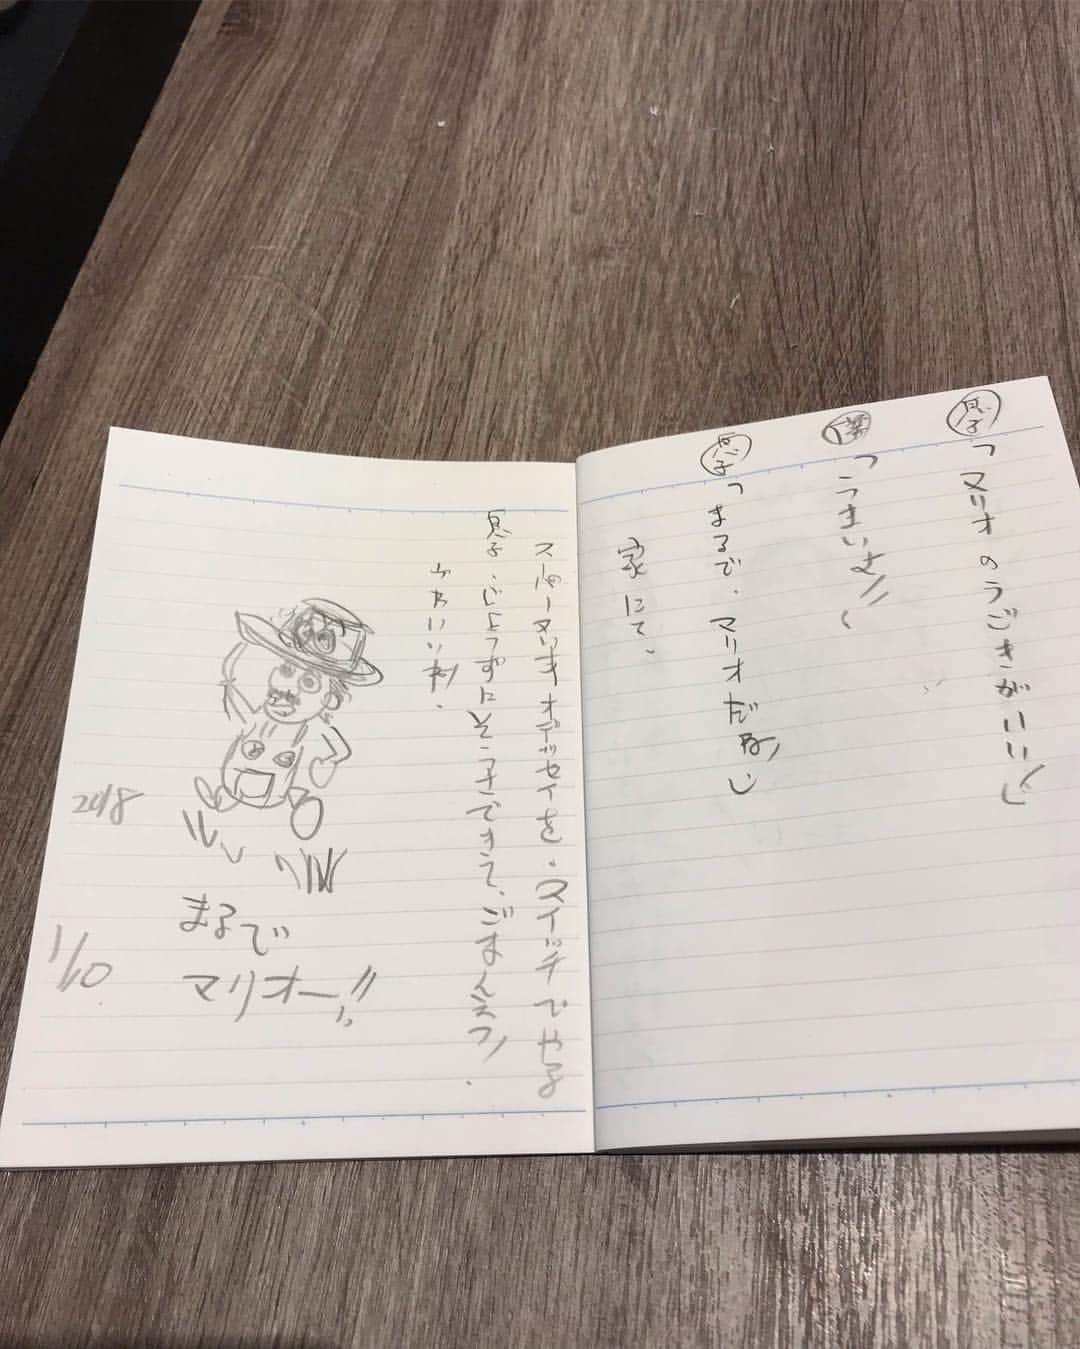 息子「マリオのうごきがいい!」
僕「うまいさ!!」
息子「まるで、マリオだな」
家にて、
スーパーマリオオデッセイを、スイッチでやる
息子、じょうずにそうさできて、ごまんえつ!
かわいいネ!
まるで
マリオー!!
2018
1/10